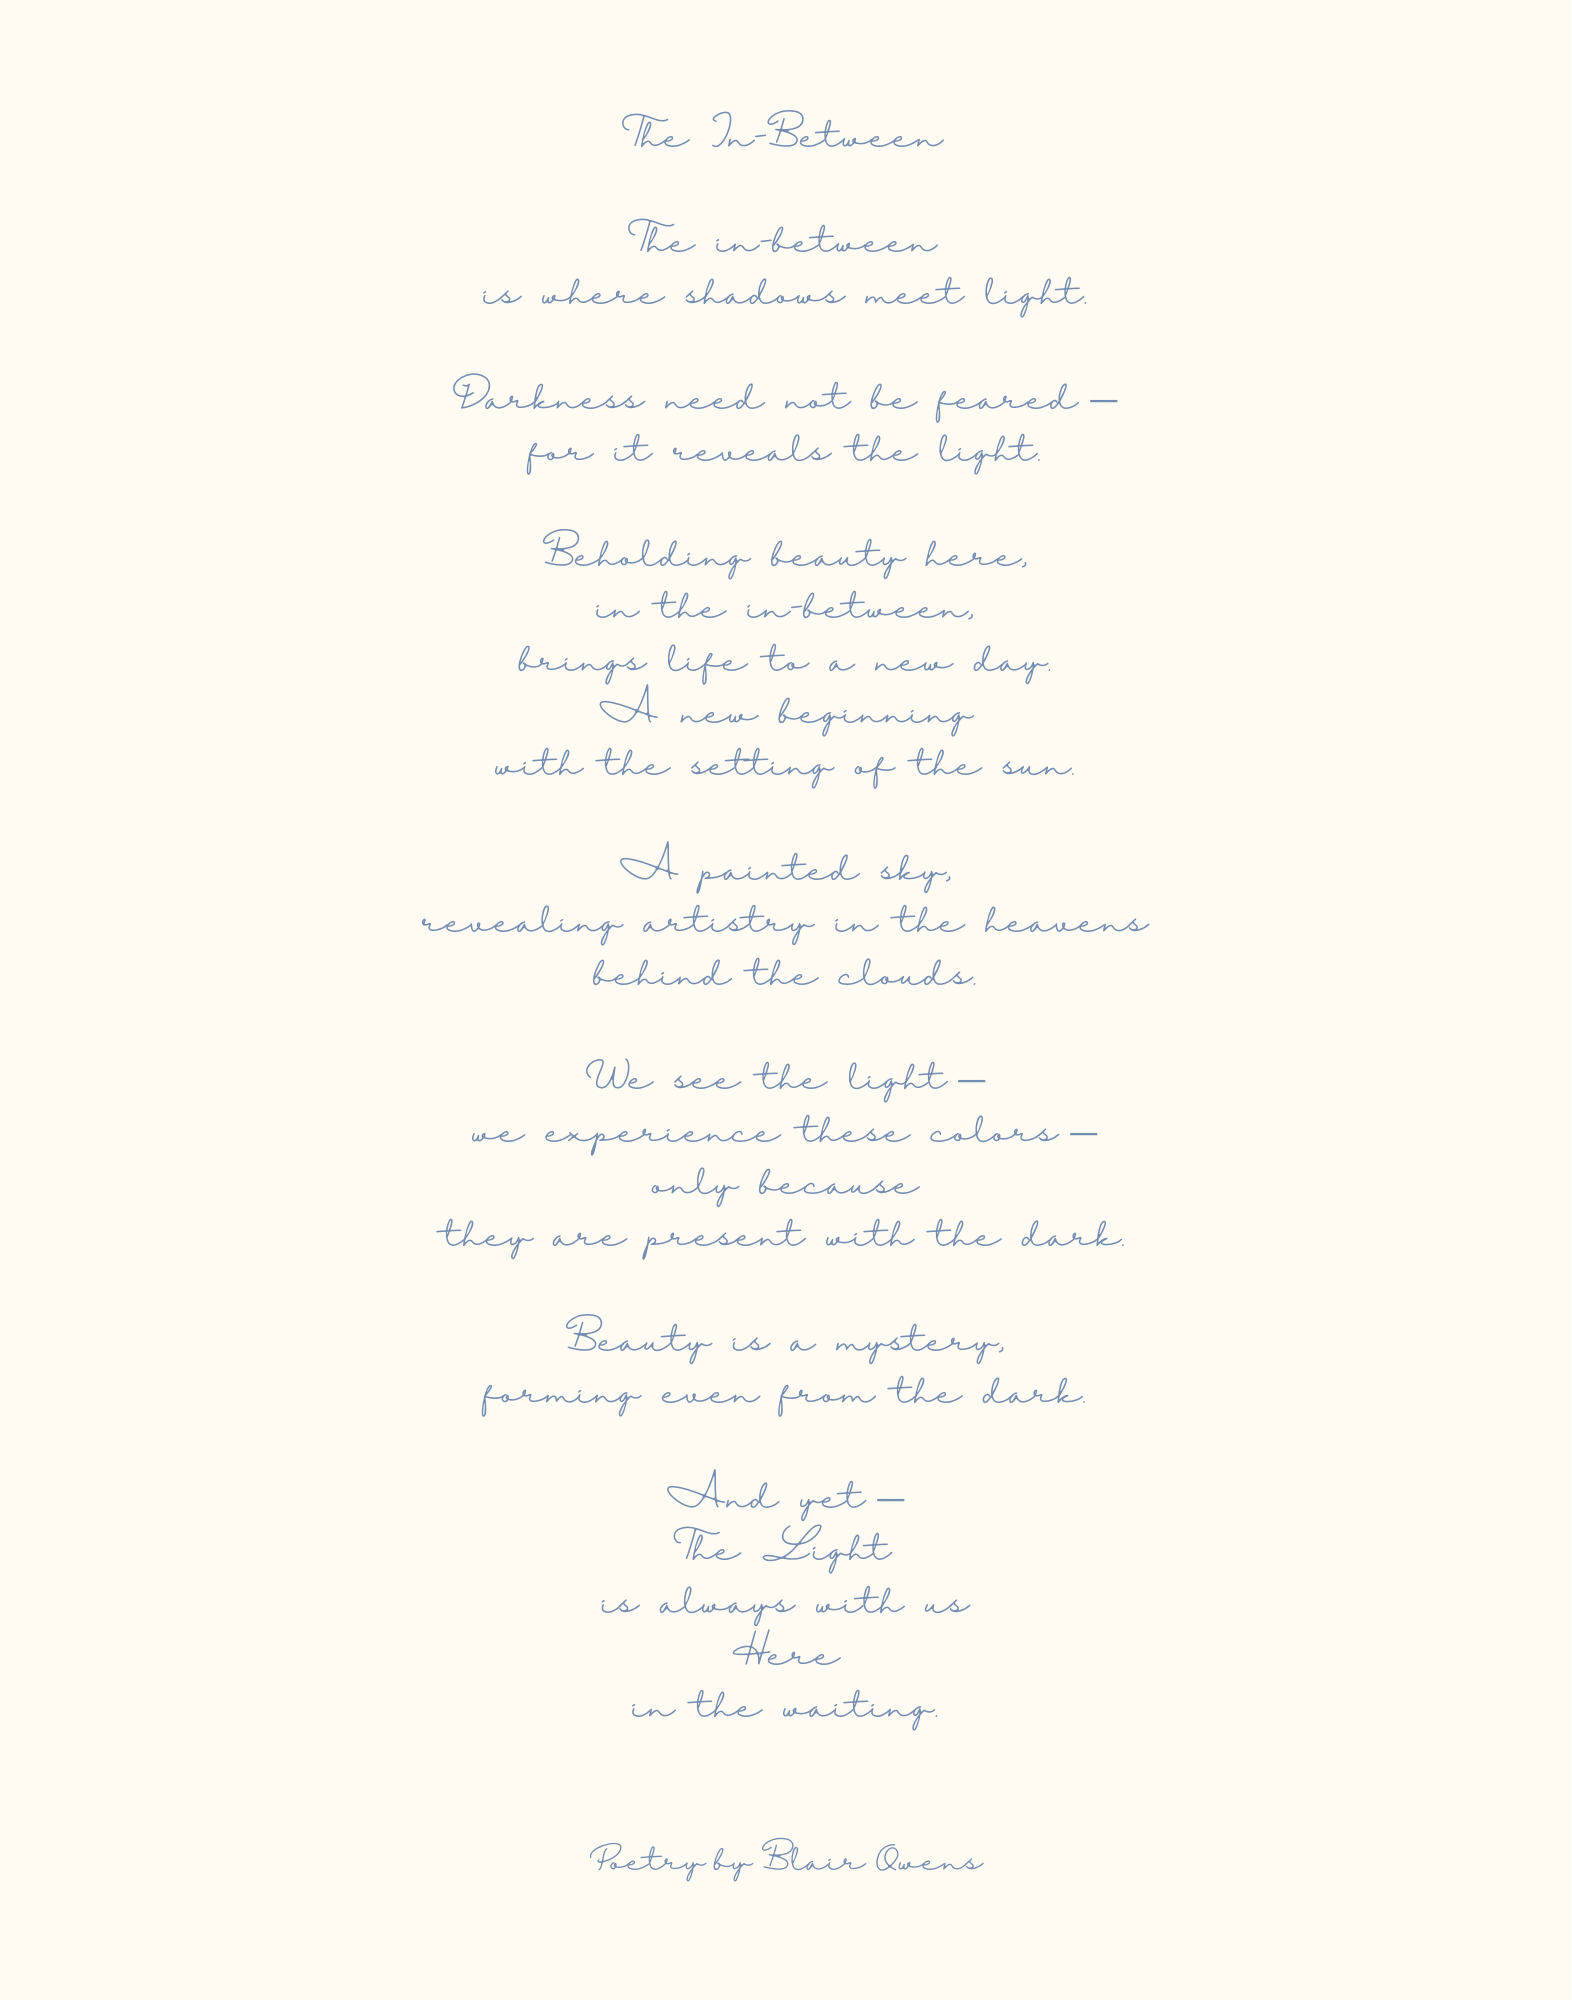 The In-Between
The in-between
is where shadows meet light.
Darkness need not be feared –
for it reveals the light.
Beholding beauty here,
in the in-between,
brings life to a new day.
A new beginning
with the setting of the sun.
A painted sky,
revealing artistry in the heavens
behind the clouds.
We see the light –
we experience these colors –
only because
they are present with the dark.
Beauty is a mystery,
forming even from the dark.
And yet –
The Light
is always with us
Here
in the waiting.
Poetry by Blair Owens